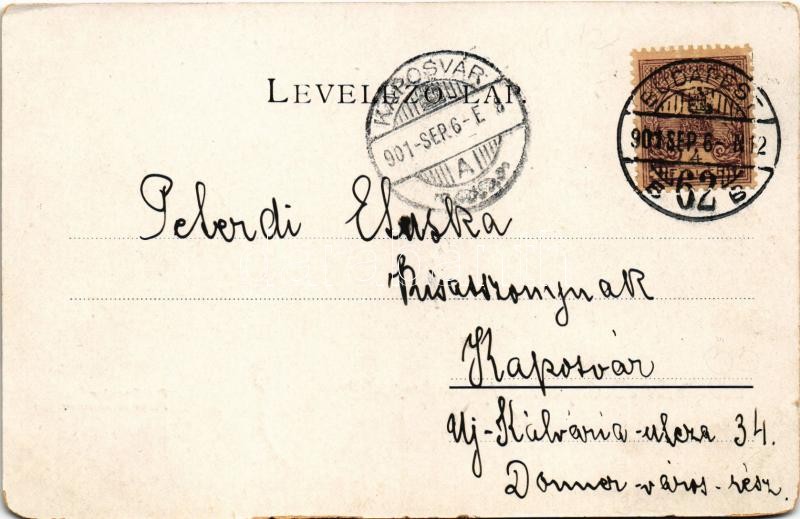 LEVELEZŐ-LAP.
KAPOSVÁR
901-SEP.6-E 8
A
BUDAPEST
901 SEP. 6 - N 12
62
Peterdi Etuska
kisasszonynak
Kaposvár
Uj-Kálvária-utcza 34.
Donner-város-rész.